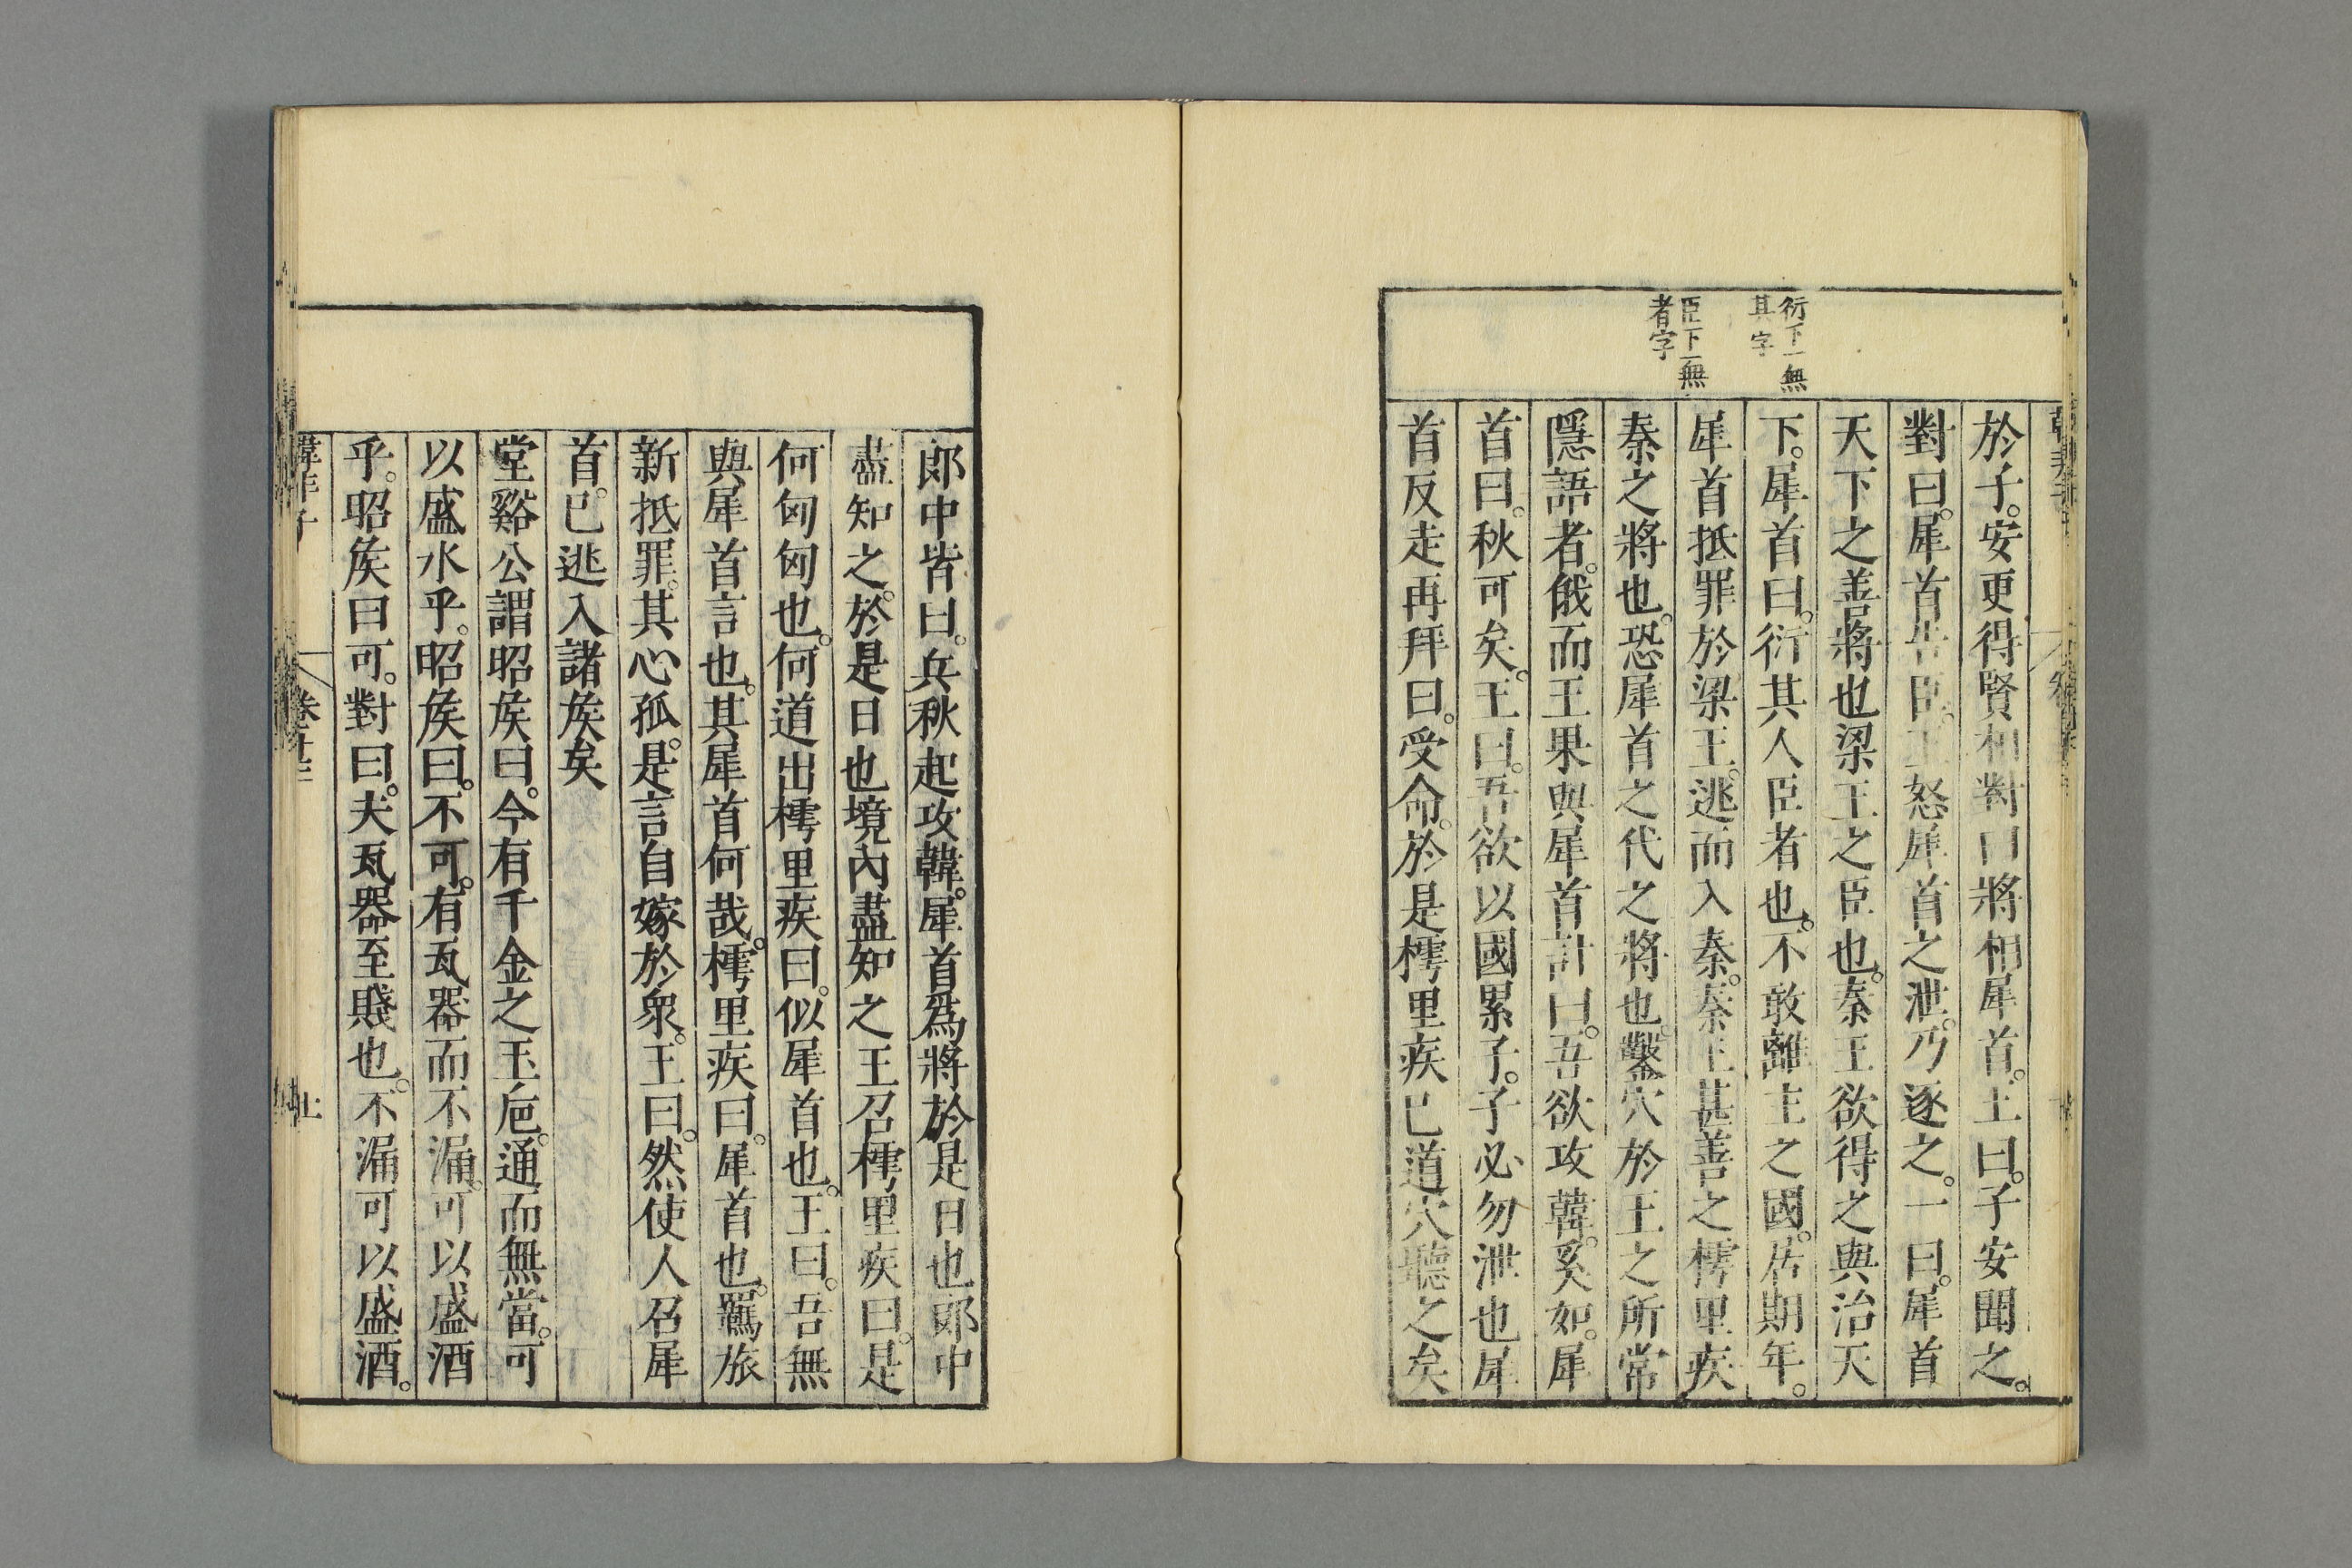 衍下一無
其字
臣下一無
者字
於子。安更得賢相對曰將相犀首。王曰。子安聞之。
對曰。犀首告臣。王怒犀首之泄。乃逐之。一曰。犀首
天下之善將也梁王之臣也。秦王欲得之與治天
下。犀首曰。衍其人臣者也。不敢離主之國。居期年。
犀首抵罪於梁王。逃而入秦。秦王甚善之樗里疾
秦之將也。恐犀首之代之將也。鑿穴於王之所常
隱語者。俄而王果與犀首計曰。吾欲攻韓。奚如。犀
首曰。秋可矣。王曰。吾欲以國累子。子必勿泄也犀
首反走再拜曰。受命。於是樗里疾已道穴聽之矣
郎中皆曰。兵秋起攻韓。犀首爲將於是日也郎中
盡知之。於是日也境內盡知之王召樗里疾曰。是
何匈匈也。何道出樗里疾曰。似犀首也。王曰。吾無
與犀首言也。其犀首何哉。樗里疾曰。犀首也。羈旅
新抵罪。其心孤。是言自嫁於衆。王曰。然使人召犀
首。已逃入諸矦矣
堂谿公謂昭矦曰。今有千金之玉巵。通而無當。可
以盛水乎。昭矦曰。不可。有瓦器而不漏。可以盛酒
乎。昭矦曰可。對曰。夫瓦器至賤也。不漏可以盛酒。
韓非子
卷十三